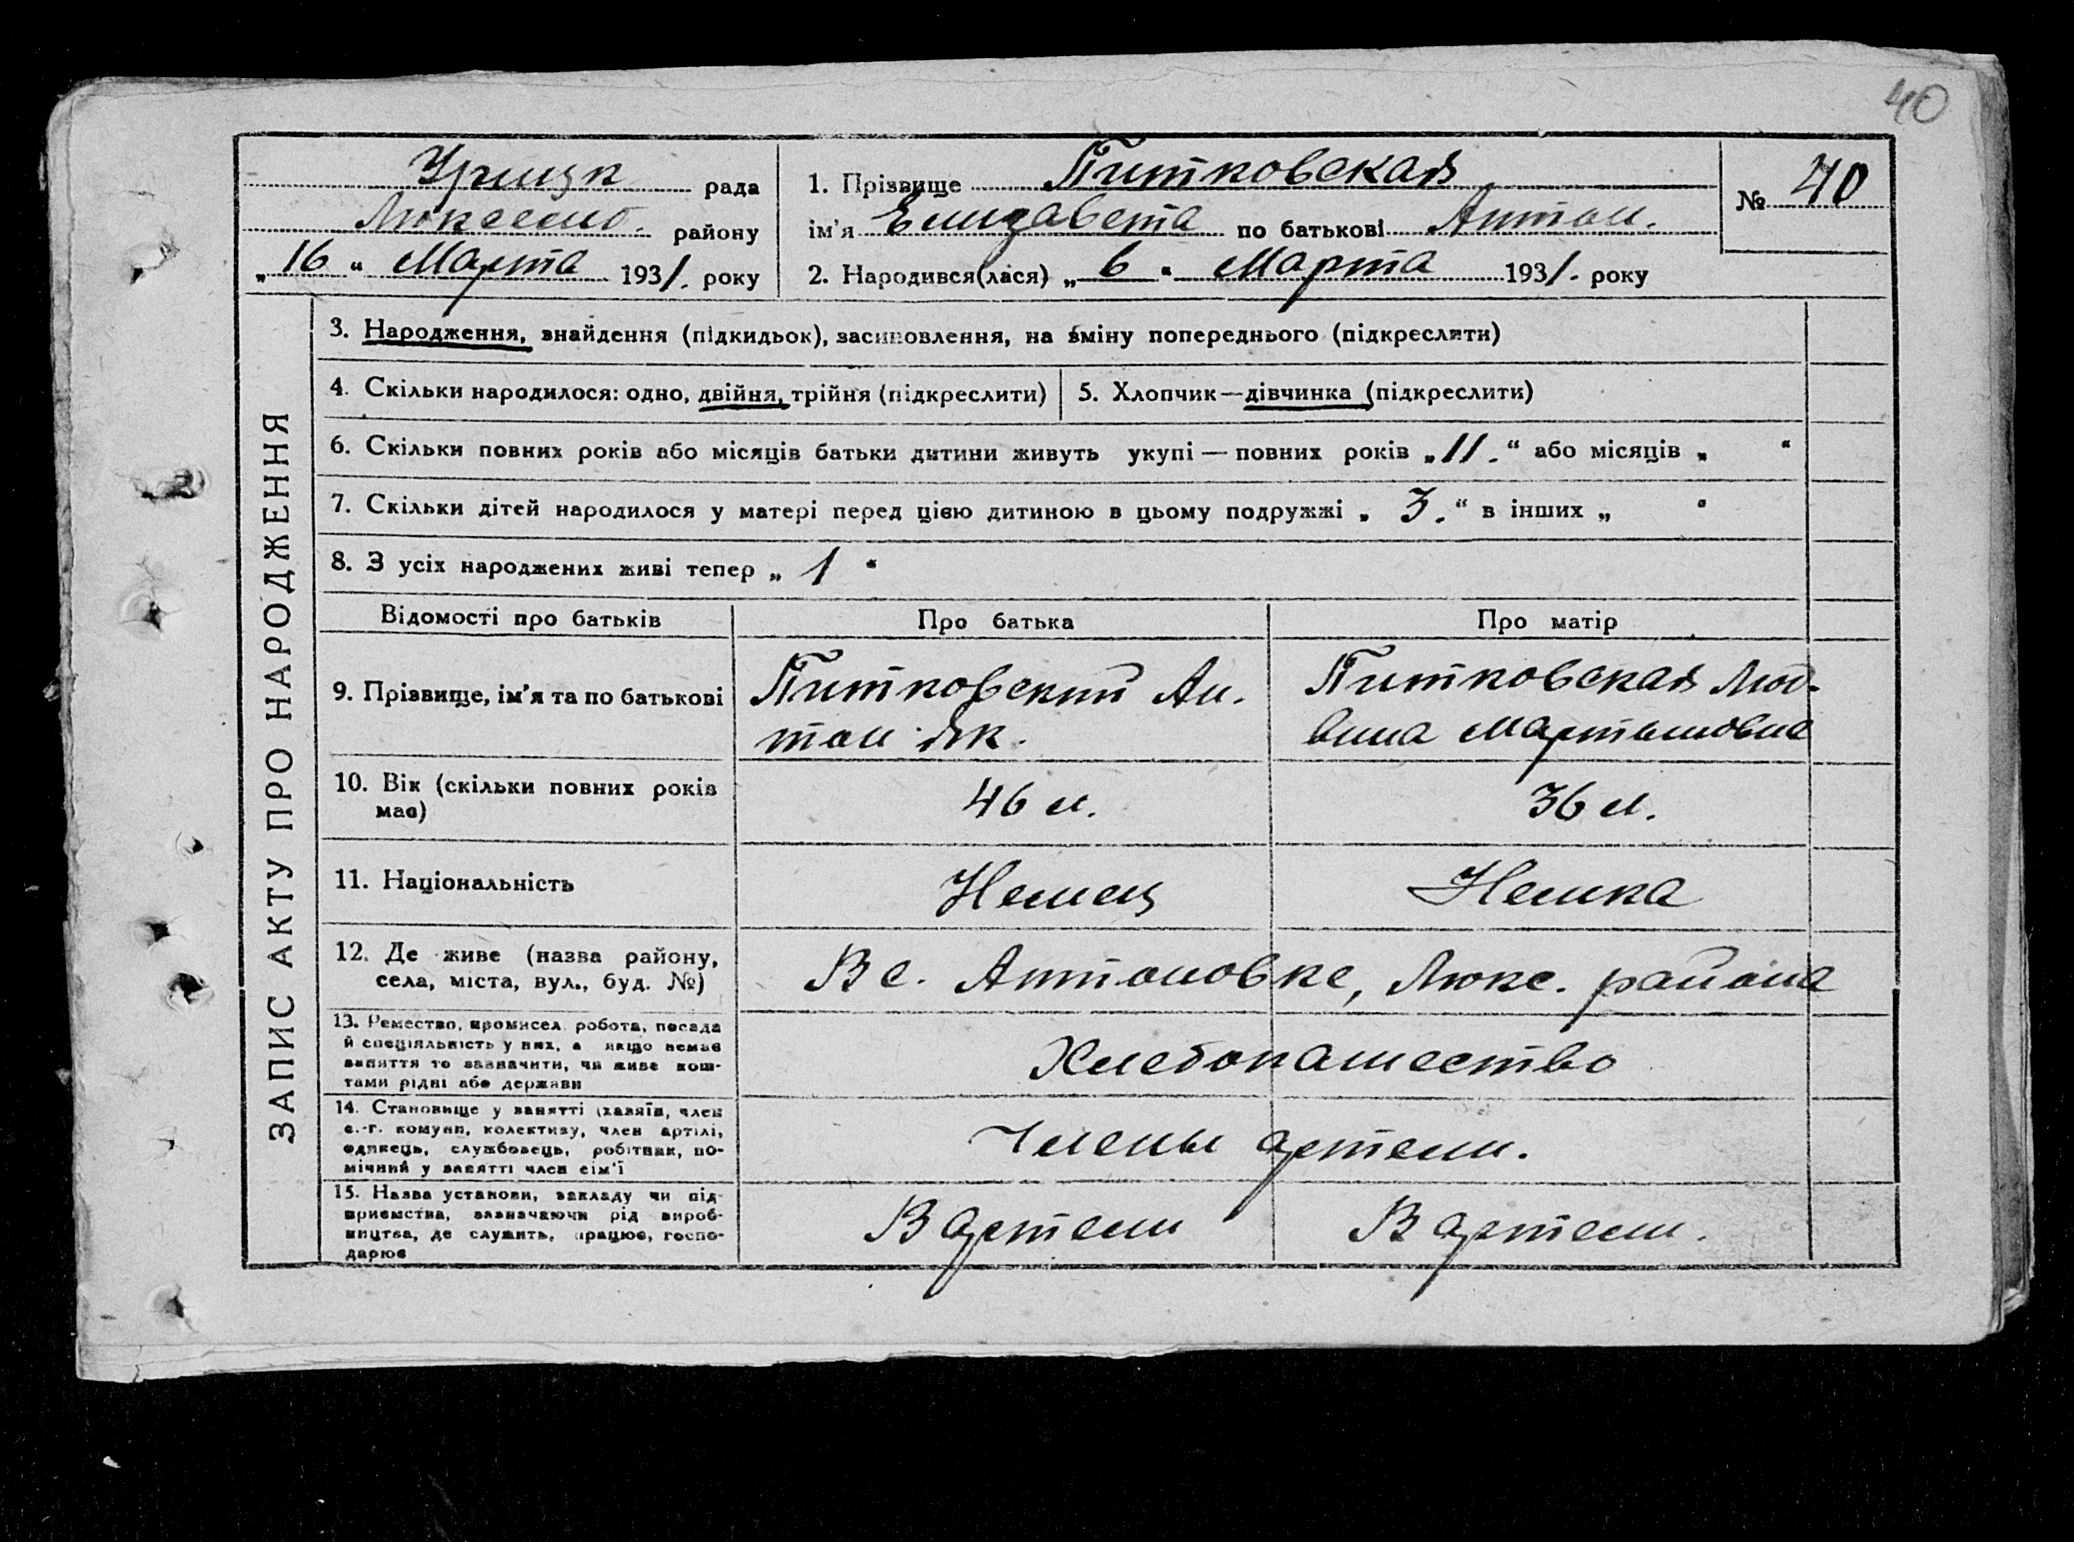 40
Урицк рада
Люксемб. району
„16“ Марта 1931. року
1. Прізвище Питковская
ім'я Елизавета по батькові Антон.
2. Народився(лася) „6“ Марта 1931. року
№ 40
ЗАПИС АКТУ ПРО НАРОДЖЕННЯ
3. Народження, знайдення (підкидьок), засиновлення, на зміну попереднього (підкреслити)
4. Скільки народилося: одно, двійня, трійня (підкреслити)
5. Хлопчик—дівчинка (підкреслити)
6. Скільки повних років або місяців батьки дитини живуть укупі — повних років „11.“ або місяців „ “
7. Скільки дітей народилося у матері перед цією дитиною в цьому подружжі „3.“ в інших „ “
8. З усіх народжених живі тепер „1“
Відомості про батьків Про батька Про матір
9. Прізвище, ім'я та по батькові
Питковский Ан-
тон Як.
Питковская Люд-
вина Мартыновна
10. Вік (скільки повних років
має)
46 л.
36 л.
11. Національність
Немец
Немка
12. Де живе (назва району,
села, міста, вул., буд. №)
В с. Антоновке, Люкс. района
13. Ремество, промисел робота, посада
й спеціяльність у них, а якщо немає
заняття то зазначити, чи живе кош-
тами рідні або держави
Хлебопашество
14. Становище у занятті (хазяїн, член
с.-г. комуни, колективу, член артілі,
одинець, службовець, робітник, по-
мічний у занятті член сім'ї
Члены артели.
15. Назва установи, закладу чи під-
приємства, зазначаючи рід вироб-
ництва, де служить, працює, госпо-
дарює
В артели
В артели.